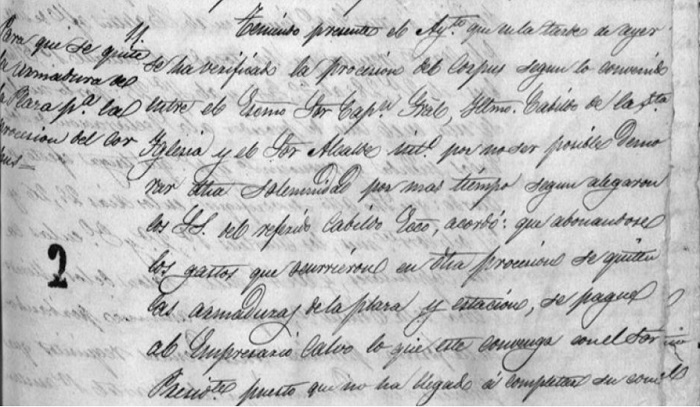 Para que se quite
la armadura de
la Plaza p.ª la
procesion del Cor
pus=
Teniendo presente el Ay.to que en la tarde de ayer
se ha verificado la procesion del Corpus segun lo convenido
entre el Escmo Sor Cap.n Gral, Illmo. Cabildo de la Sta
Iglesia y el Sor Alcalde int.o por no ser posible demo
rar dha solemnidad por mas tiempo segun alegaron
los SS. del referido Cabildo Ecco, acordó: que abonandose
los gastos que ocurrieron en dha procesion se quiten
las armaduras de la plaza y estacion, se pague
al Empresario Calvo lo que este convenga con el Sor
Presid.te puesto que no ha llegado á completar su
2